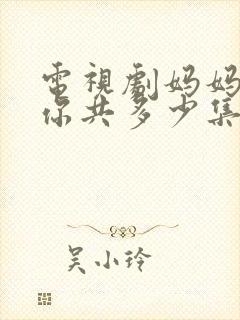 電視劇妈妈
你共多少集
吴小玲